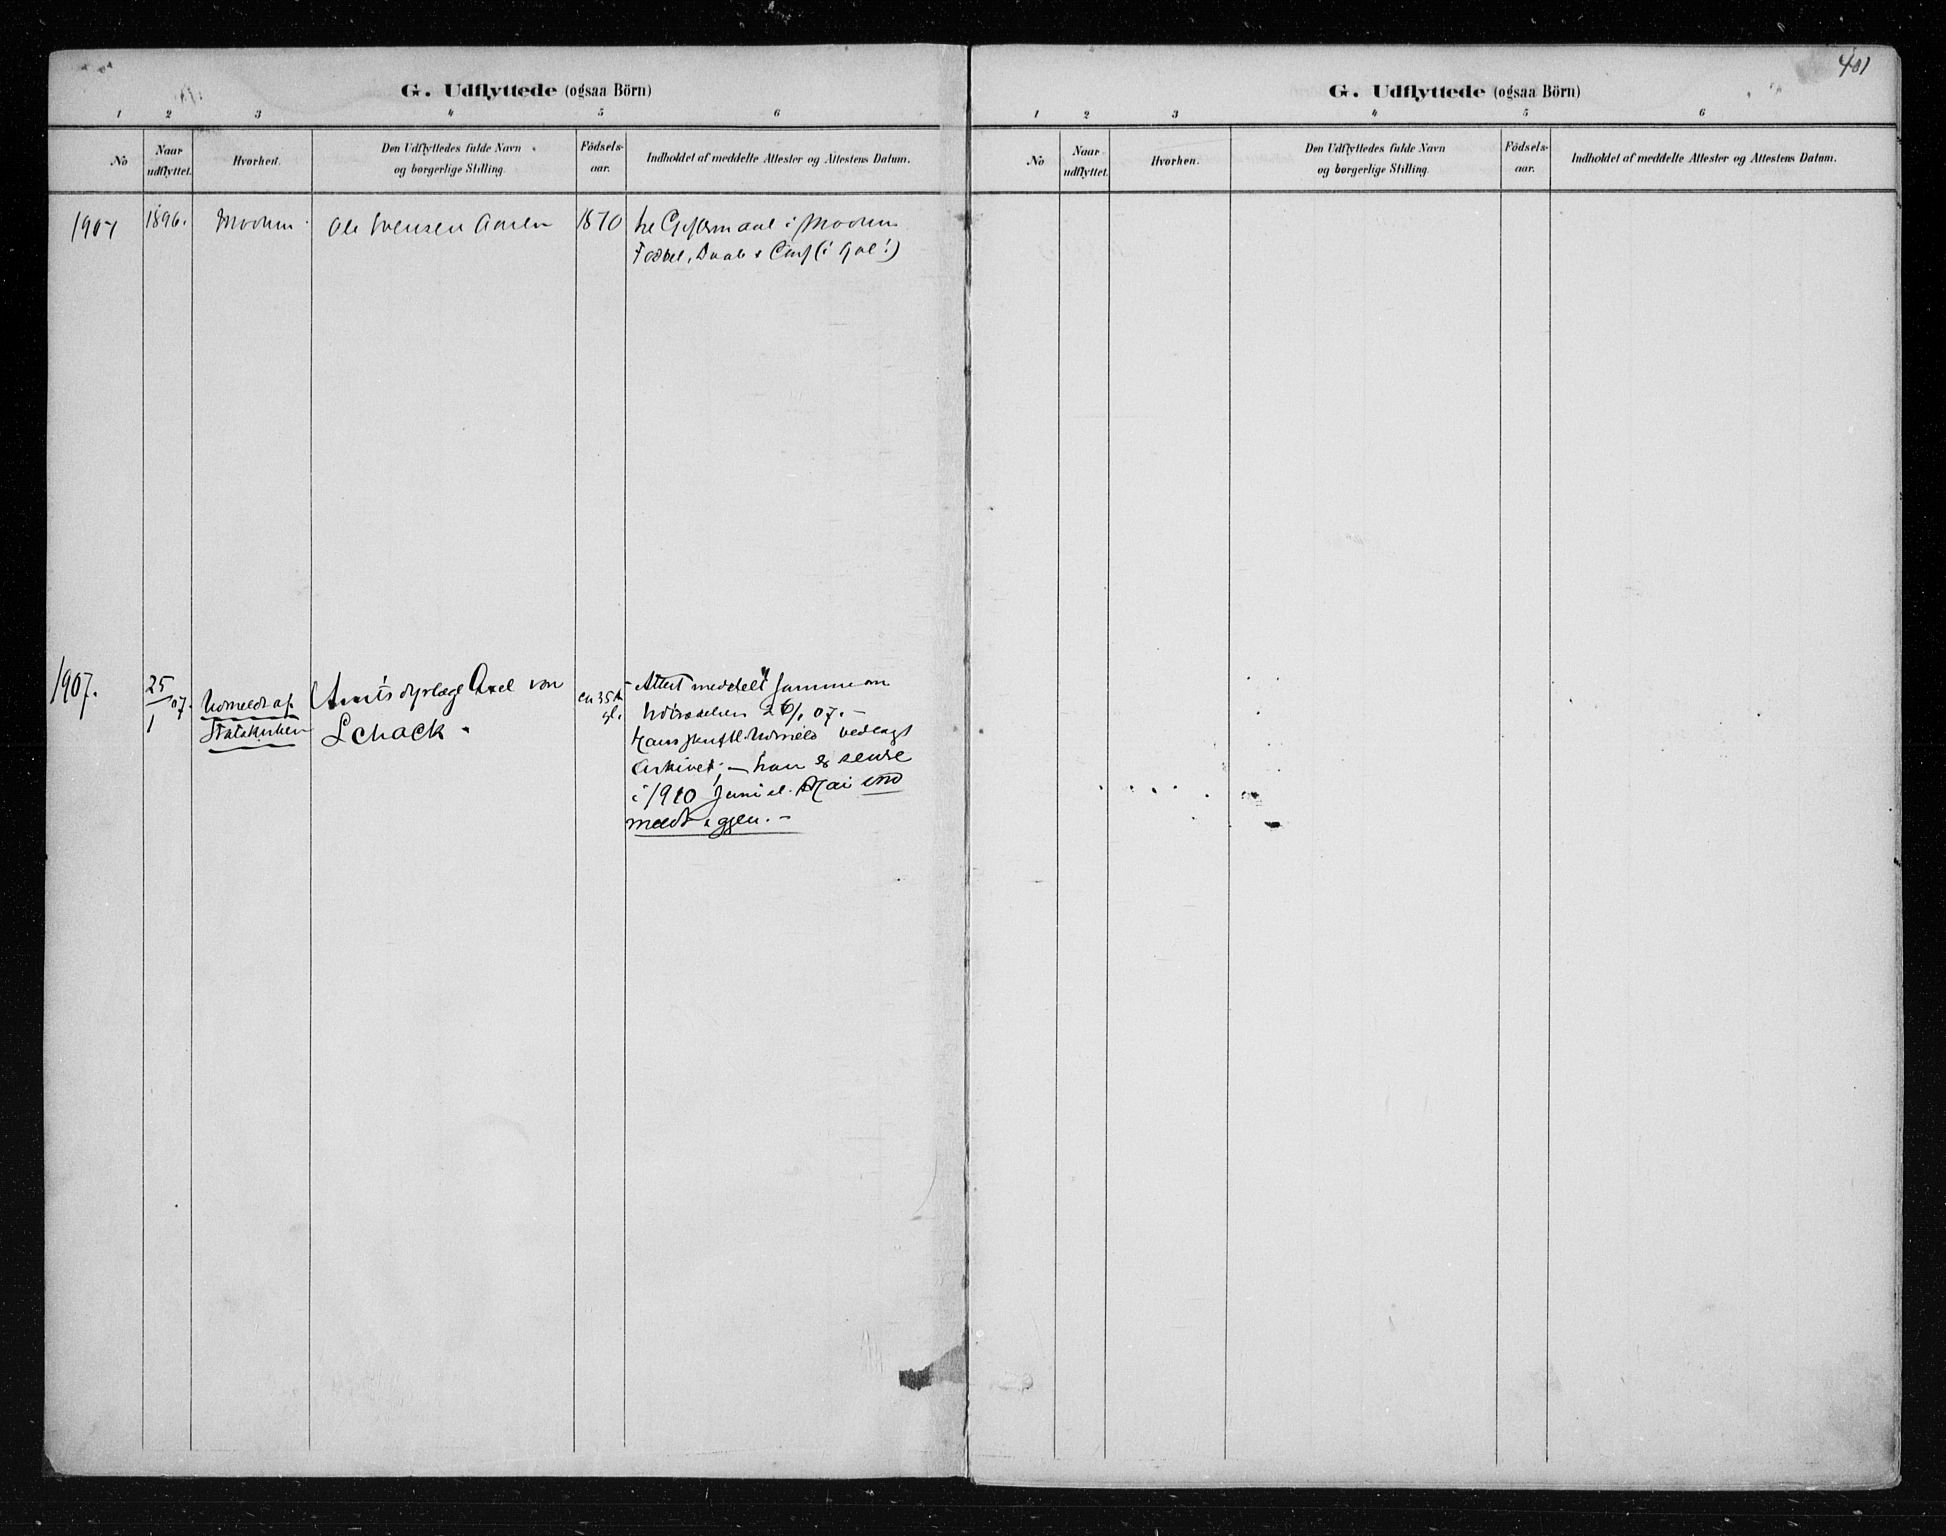 G. Udflyttede (ogsaa Börn)
1 2 3 4 5 6
No Naar udflyttet. Hvorhen. Den Udflyttedes fulde Navn og borgerlige Stilling. Födsels-aar. Indholdet af meddelte Attester og Attestens Datum.
1907 1896. Modum. Ole Svensen 1870 til Giftermaal i Modum
Fødsel, Daab & Conf (i Gol!)
1907. 25/1 07. Udmeldt af Amtsdyrlæge Axel von ca 35 Attest meddelt samme om
Statskirken Schack. gl. Udtrædelsen 26/1 07. –
Hans skriftl. Udmeld. vedlagt
Arkivet; – han er senere
i 1910 Juni el. Mai ind
meldt igjen. –
401
G. Udflyttede (ogsaa Börn)
1 2 3 4 5 6
No Naar udflyttet. Hvorhen. Den Udflyttedes fulde Navn og borgerlige Stilling. Födsels-aar. Indholdet af meddelte Attester og Attestens Datum.